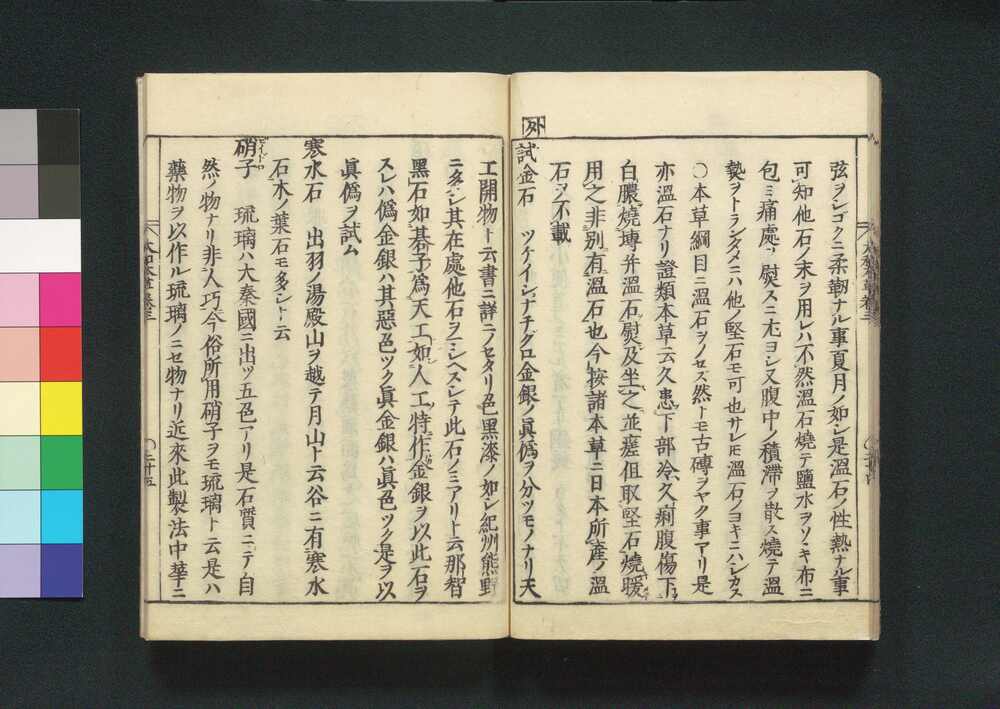 弦ヲレゴクニ柔靭ナル事夏月ノ如シ是溫石ノ性熱ナル事
可知他石ノ末ヲ用レハ不然溫石燒テ鹽水ヲソヽキ布ニ
包ミ痛處ヲ熨スニ尤ヨシ又腹中ノ積滯ヲ散ス燒テ溫
熱ヲトランタメニハ他ノ堅石モ可也サレ𪜈溫石ノヨキニハシカス
〇本草綱目ニ溫石ヲノセズ然トモ古磚ヲヤク事アリ是
亦溫石ナリ證類本草云久患下部冷久痢腹傷下
白膿燒塼并溫石熨及坐之並瘥但取堅石燒暖
用之非別有溫石也今按諸本草ニ日本所產ノ溫
石ヲ不載
外
試金石 ツケイシナチグロ金銀ノ眞偽ヲ分ツモノナリ天
工開物ト云書ニ詳ニノセタリ色黑漆ノ如シ紀州熊野
ニ多シ其在處他石ヲマシヘスシテ此石ノミアリト云那智
黑石如碁子爲天工如人工特作金銀ヲ以此石ヲ
スレハ偽金銀ハ其惡色ツク眞金銀ハ眞色ツク是ヲ以
眞偽ヲ試ム
寒水石 出羽ノ湯殿山ヲ越テ月山ト云谷ニ有寒水
石木ノ葉石モ多シト云
硝子 琉璃ハ大秦國ニ出ツ五色アリ是石質ニテ自
然ノ物ナリ非人巧今俗所用硝子ヲモ琉璃ト云是ハ
藥物ヲ以作ル琉璃ノニセ物ナリ近來此製法中華ニ